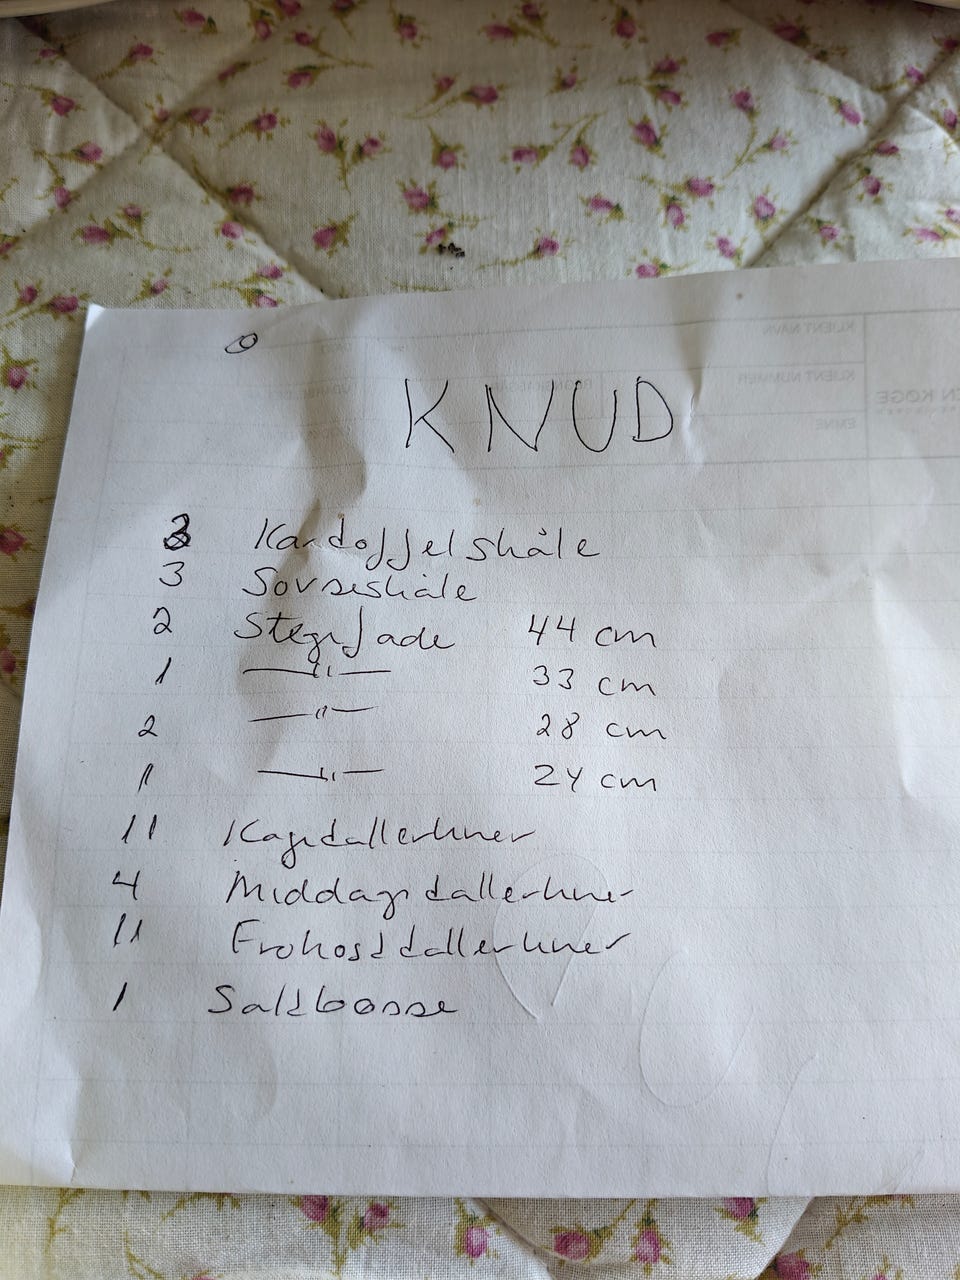 KLIENT NAVN
KLIENT NUMMER
EMNE
EN KØGE
KNUD
3 Kartoffelskåle
3 Sovseskåle
2 Stegefade 44 cm
1 —"— 33 cm
2 —"— 28 cm
1 —"— 24 cm
11 Kagetallerkner
4 Middagstallerkner
11 Frokosttallerkner
1 Saltbøsse